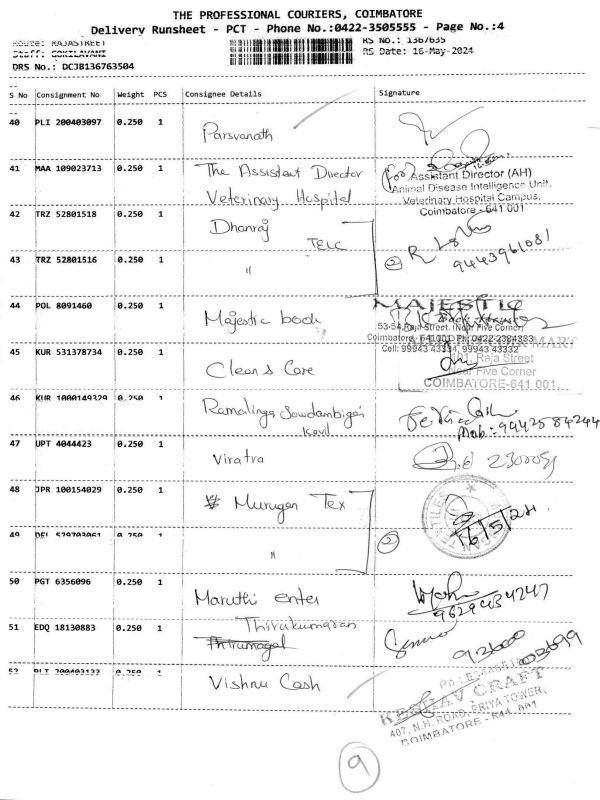 THE PROFESSIONAL COURIERS, COIMBATORE
Delivery Runsheet - PCT - Phone No.:0422-3505555 - Page No.:4
Route: RAJASTREET
RS No.: 1367635
Staff: GOKILAVANI
RS Date: 16-May-2024
DRS No.: DCJB136763504
S No Consignment No Weight PCS Consignee Details Signature
40 PLI 200403097 0.250 1 Parsvanath
41 MAA 109023713 0.250 1 The Assistent Director
Veterinary Hospital
(for) Assistant Director (AH)
Animal Disease Intelligence Unit,
Veterinary Hospital Campus,
Coimbatore - 641 001
42 TRZ 52801518 0.250 1 Dhanraj
TELC
43 TRZ 52801516 0.250 1 "
2
9443961081
44 POL 8091460 0.250 1 Majestic book
MAJESTIC
53-54, Raja Street. (Near Five Corner)
Coimbatore - 641001 Ph: 0422-2384333
Cell: 99943 43334, 99943 43332
45 KUR 531378734 0.250 1 Clean & Care
Raja Street
Near Five Corner
COIMBATORE-641 001.
46 KUR 1000149329 0.250 1 Ramalinga Sowdambigai
Kovil
Mob:- 9442584244
47 UPT 4044423 0.250 1 Viratra
48 JPR 100154029 0.250 1 Murugan Tex
16/5/24
49 DEL 529703061 0.250 1 "
2
50 PGT 6356096 0.250 1 Maruthi enter
9629434247
51 EDQ 18130883 0.250 1 Thirukumaran
52 PLI 200403133 0.250 1 Vishnu Cash
KESHAV CRAFT
407, N.H. ROAD, PRIYA TOWER,
COIMBATORE - 641 001
9